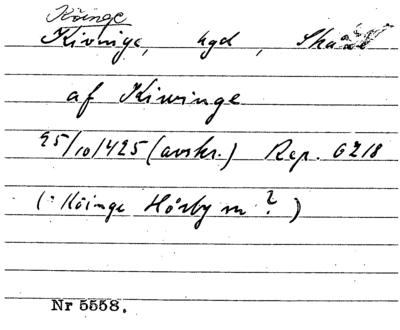 Köinge
Kivninge, hgd, Skåne
af Kiwinge
25/10 1425 (avskr.) Rep. 6218
(: Köinge Hörby sn ? )
Nr 5558.